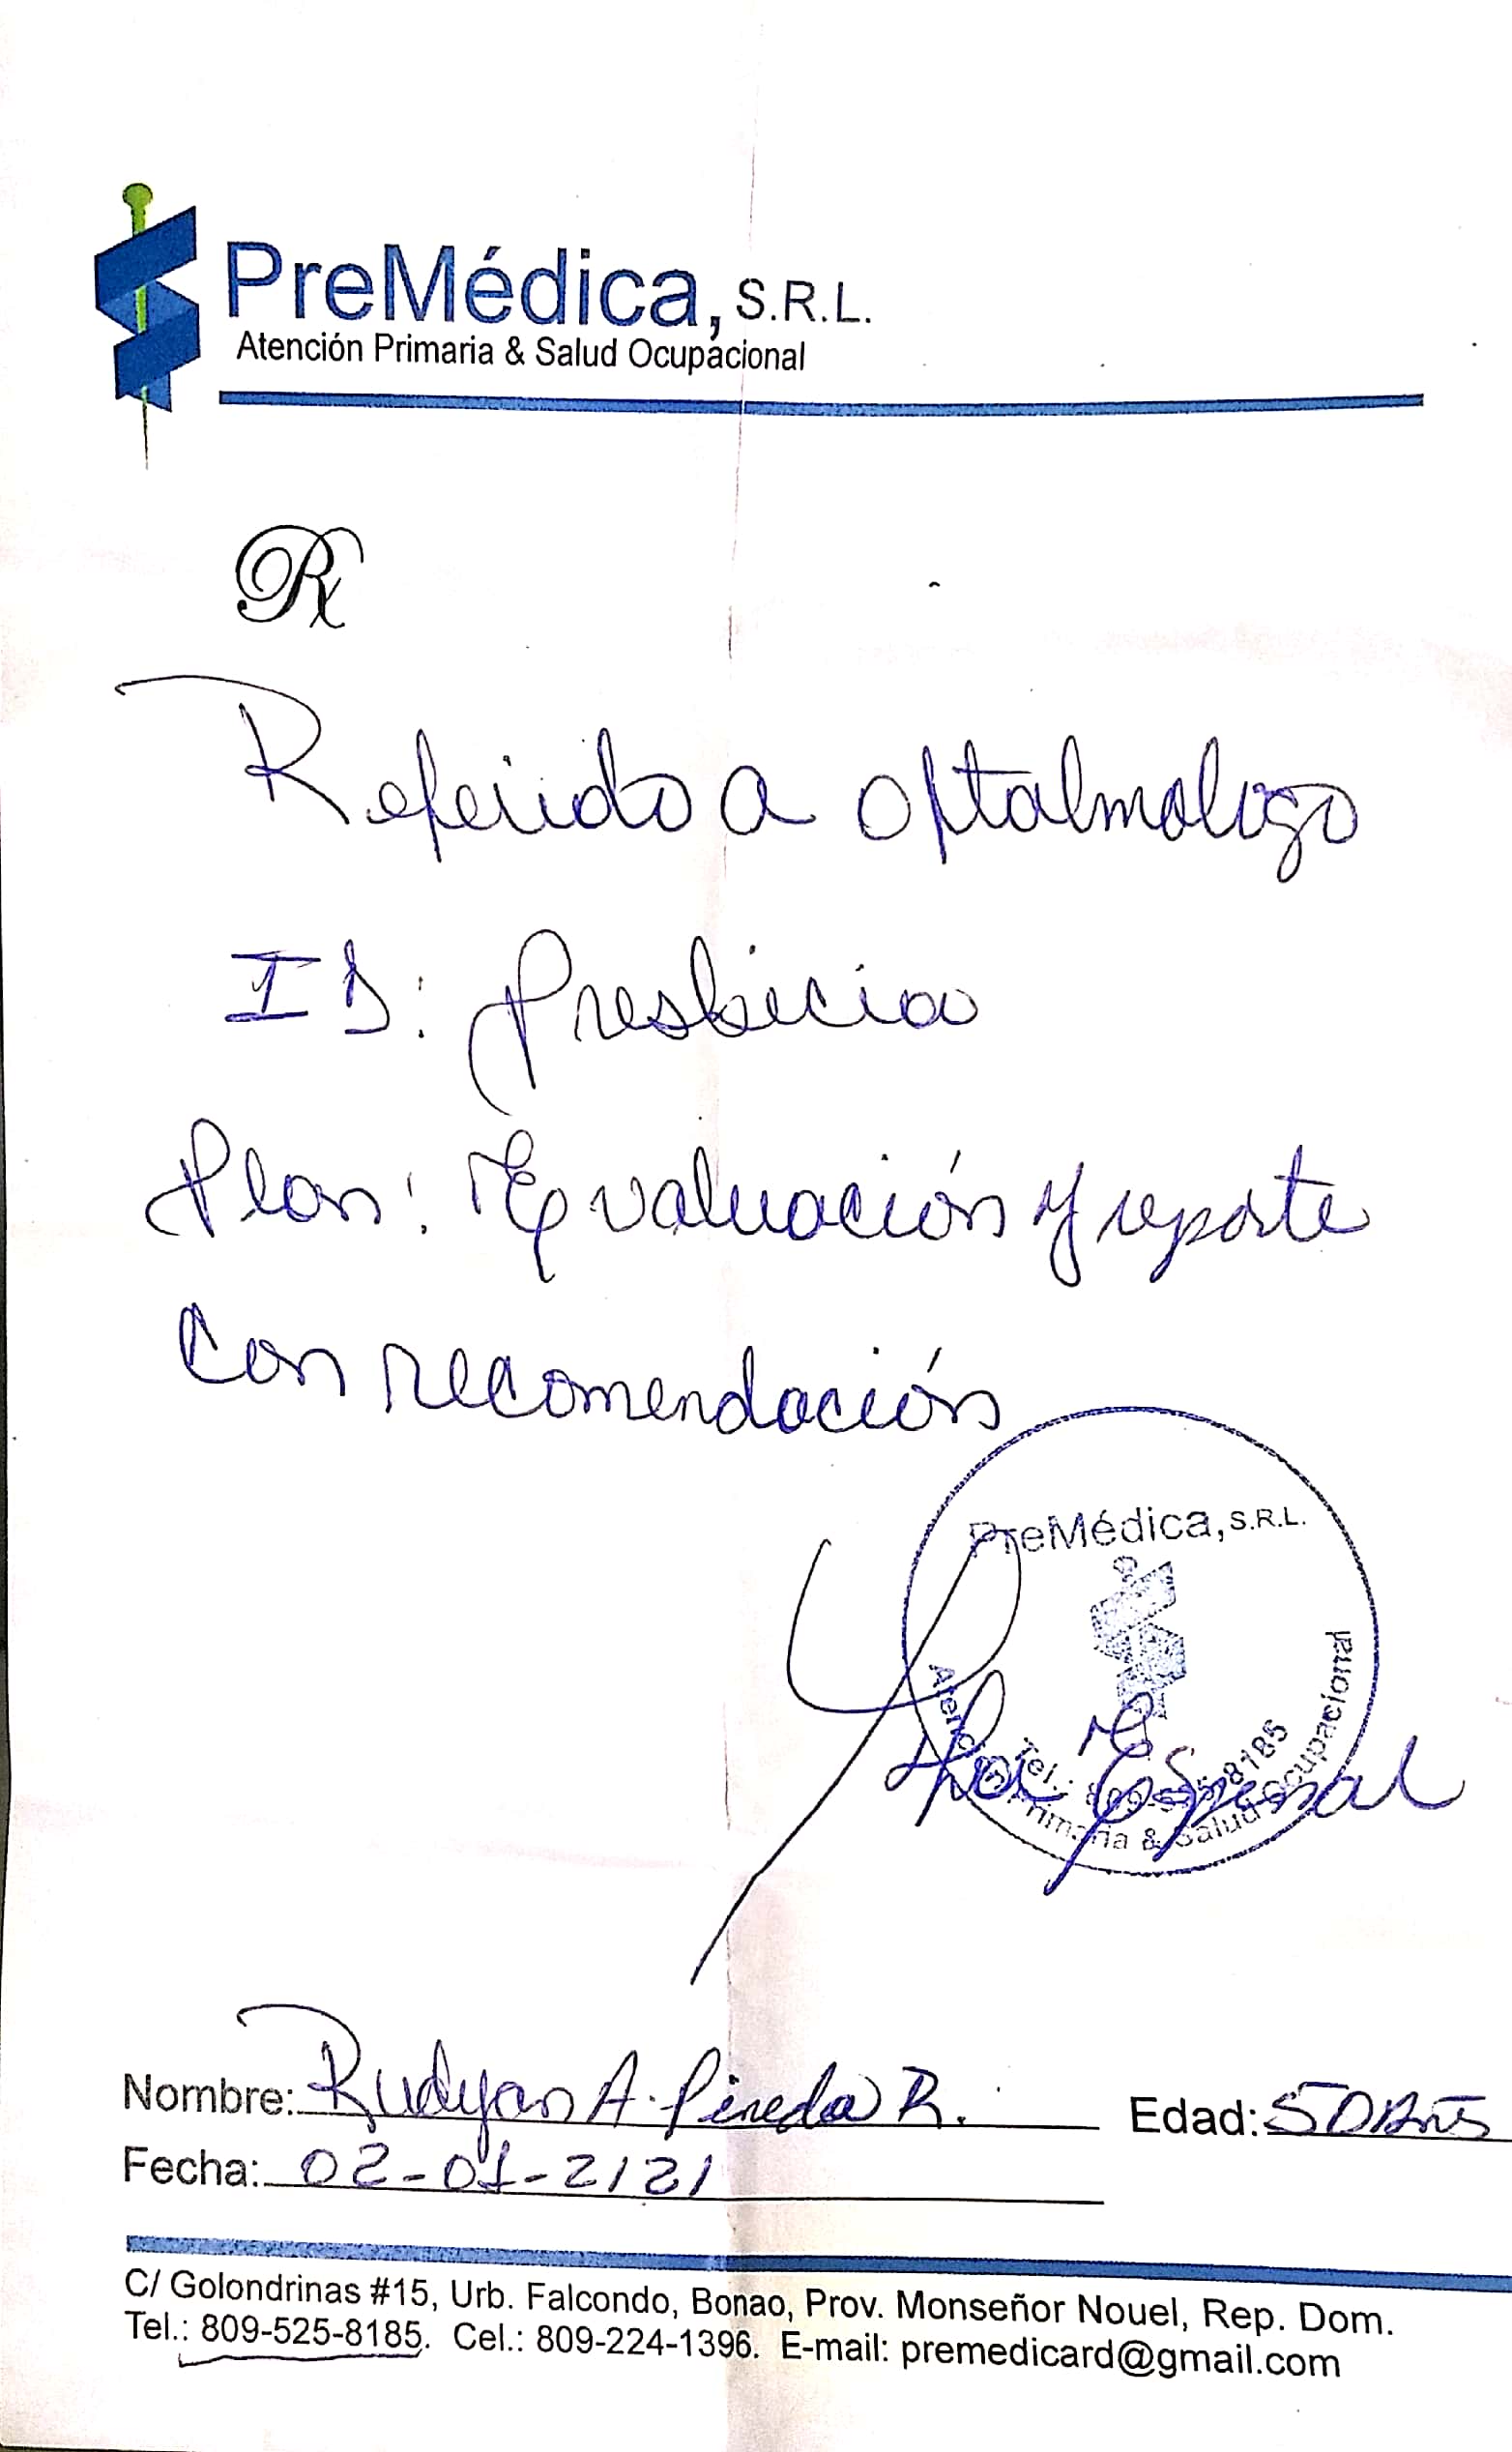 PreMédica, S.R.L.
Atención Primaria & Salud Ocupacional
Rx
Referido a oftalmologo
ID: Presbicia
Plan: Evaluación y reporte
con recomendación
PreMédica, S.R.L.
Tel.: 809-525-8185
Atención Primaria & Salud Ocupacional
Espinal
Nombre: Rudyan A. Pineda R. Edad: 50
Fecha: 02-01-2121
C/ Golondrinas #15, Urb. Falcondo, Bonao, Prov. Monseñor Nouel, Rep. Dom.
Tel.: 809-525-8185. Cel.: 809-224-1396. E-mail: premedicard@gmail.com